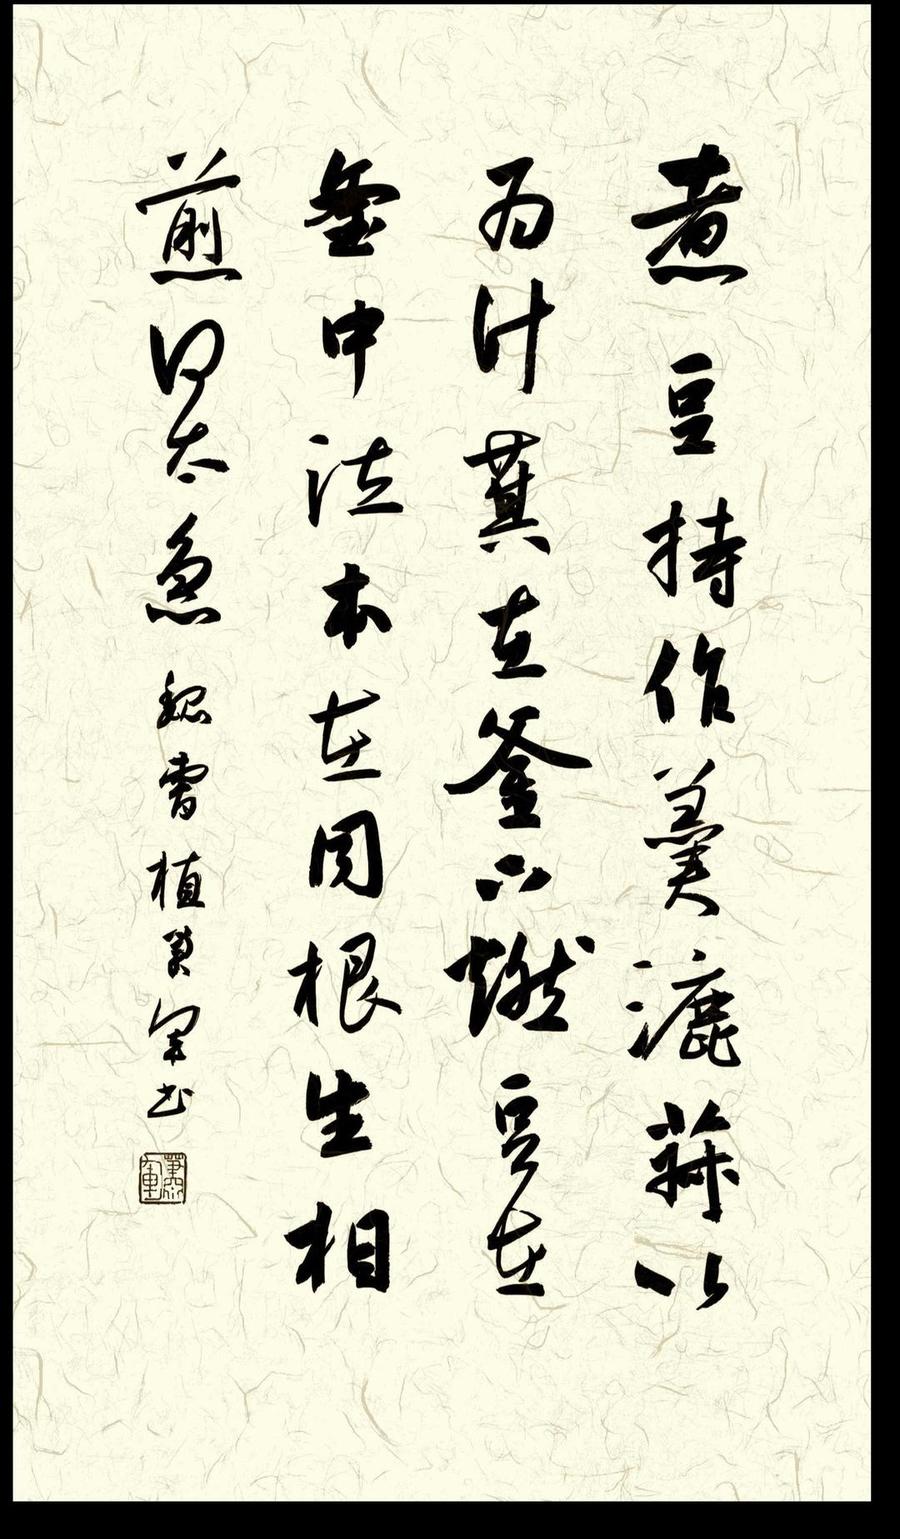 煮豆持作羹漉菽以
为汁萁在釜下燃豆在
釜中泣本在同根生相
煎何太急 魏曹植 军书